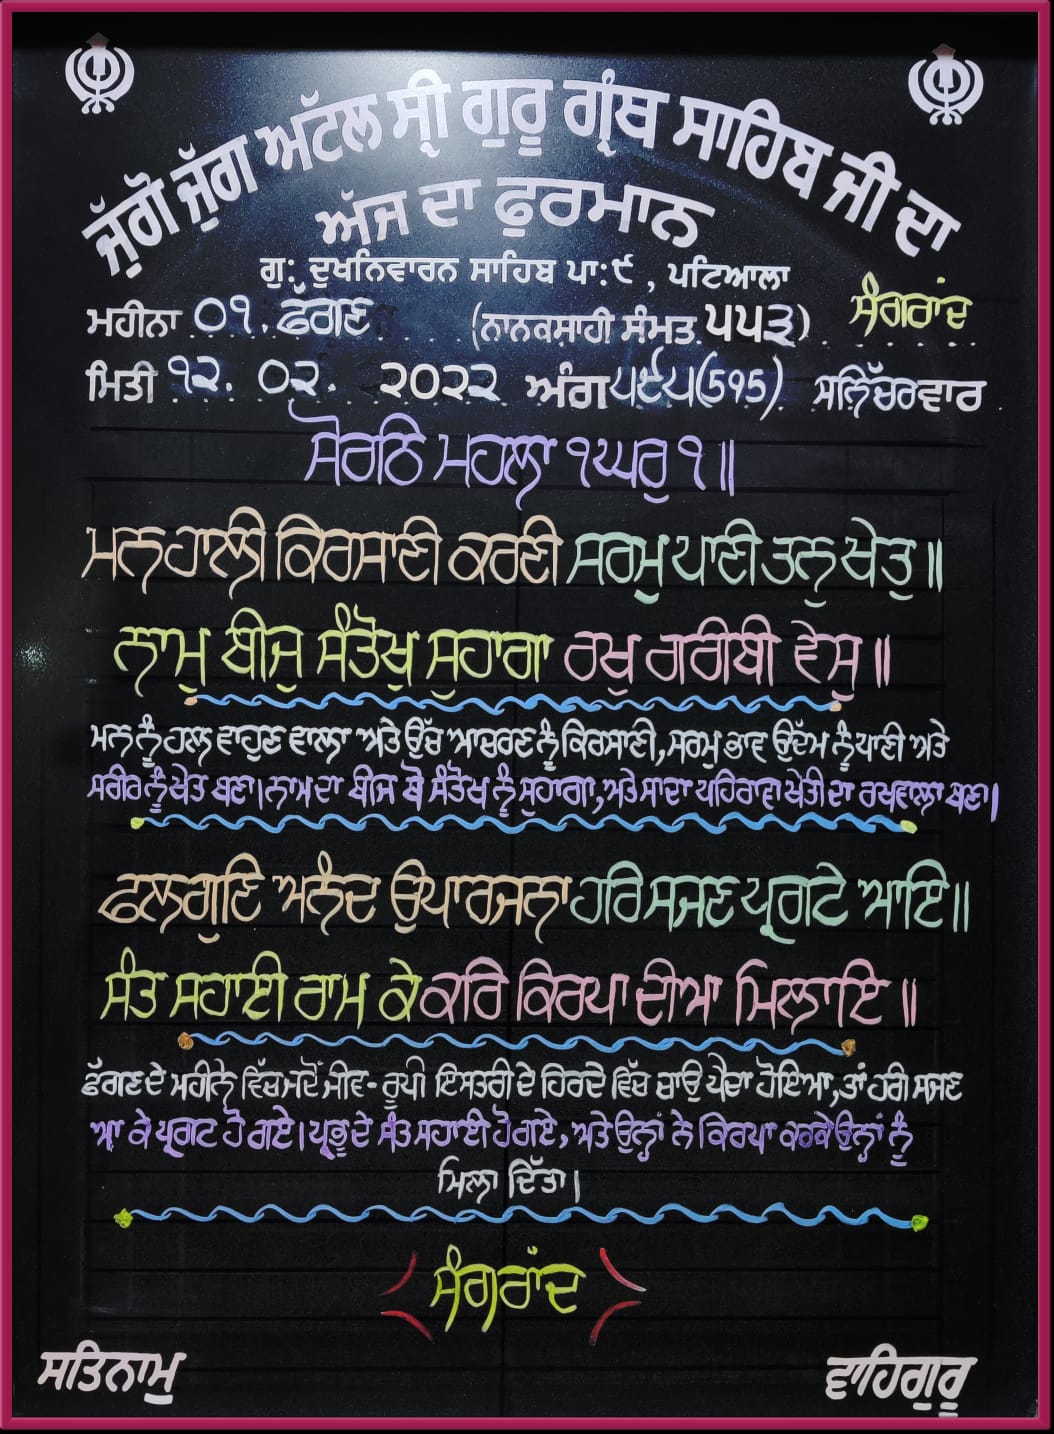 ਜੁੱਗੋ ਜੁੱਗ ਅਟੱਲ ਸ੍ਰੀ ਗੁਰੂ ਗ੍ਰੰਥ ਸਾਹਿਬ ਜੀ ਦਾ
ਅੱਜ ਦਾ ਫੁਰਮਾਨ
ਗੁ: ਦੁਖਨਿਵਾਰਨ ਸਾਹਿਬ ਪਾ:੯ , ਪਟਿਆਲਾ
ਸੰਗਰਾਂਦ
ਮਹੀਨਾ ੦੧. ਫੱਗਣ (ਨਾਨਕਸ਼ਾਹੀ ਸੰਮਤ ੫੫੩)
ਮਿਤੀ ੧੨. ੦੨. ੨੦੨੨ ਅੰਗ ੫੯੫(595) ਸਨਿੱਚਰਵਾਰ
ਸੋਰਠਿ ਮਹਲਾ ੧ ਘਰੁ ੧ ॥
ਮਨ ਹਾਲੀ ਕਿਰਸਾਣੀ ਕਰਣੀ ਸਰਮੁ ਪਾਣੀ ਤਨੁ ਖੇਤੁ ॥
ਨਾਮੁ ਬੀਜੁ ਸੰਤੋਖੁ ਸੁਹਾਗਾ ਰਖੁ ਗਰੀਬੀ ਵੇਸੁ ॥
ਮਨ ਨੂੰ ਹਲ ਵਾਹੁਣ ਵਾਲਾ ਅਤੇ ਉੱਚ ਆਚਰਣ ਨੂੰ ਕਿਰਸਾਣੀ, ਸਰਮੁ ਭਾਵ ਉੱਦਮ ਨੂੰ ਪਾਣੀ ਅਤੇ
ਸਰੀਰ ਨੂੰ ਖੇਤ ਬਣਾ। ਨਾਮ ਦਾ ਬੀਜ ਬੋ ਸੰਤੋਖ ਨੂੰ ਸੁਹਾਗਾ, ਅਤੇ ਸਾਦਾ ਪਹਿਰਾਵਾ ਖੇਤੀ ਦਾ ਰਖਵਾਲਾ ਬਣਾ।
ਫਲਗੁਣਿ ਅਨੰਦ ਉਪਾਰਜਨਾ ਹਰਿ ਸਜਣ ਪ੍ਰਗਟੇ ਆਇ॥
ਸੰਤ ਸਹਾਈ ਰਾਮ ਕੇ ਕਰਿ ਕਿਰਪਾ ਦੀਆ ਮਿਲਾਇ ॥
ਫੱਗਣ ਦੇ ਮਹੀਨੇ ਵਿੱਚ ਜਦੋਂ ਜੀਵ-ਰੂਪੀ ਇਸਤਰੀ ਦੇ ਹਿਰਦੇ ਵਿੱਚ ਚਾਉ ਪੈਦਾ ਹੋਇਆ, ਤਾਂ ਹਰੀ ਸਜਣ
ਆ ਕੇ ਪ੍ਰਗਟ ਹੋ ਗਏ। ਪ੍ਰਭੂ ਦੇ ਸੰਤ ਸਹਾਈ ਹੋ ਗਏ, ਅਤੇ ਉਨ੍ਹਾਂ ਨੇ ਕਿਰਪਾ ਕਰਕੇ ਉਨ੍ਹਾਂ ਨੂੰ
ਮਿਲਾ ਦਿੱਤਾ।
ਸੰਗਰਾਂਦ
ਸਤਿਨਾਮੁ ਵਾਹਿਗੁਰੂ